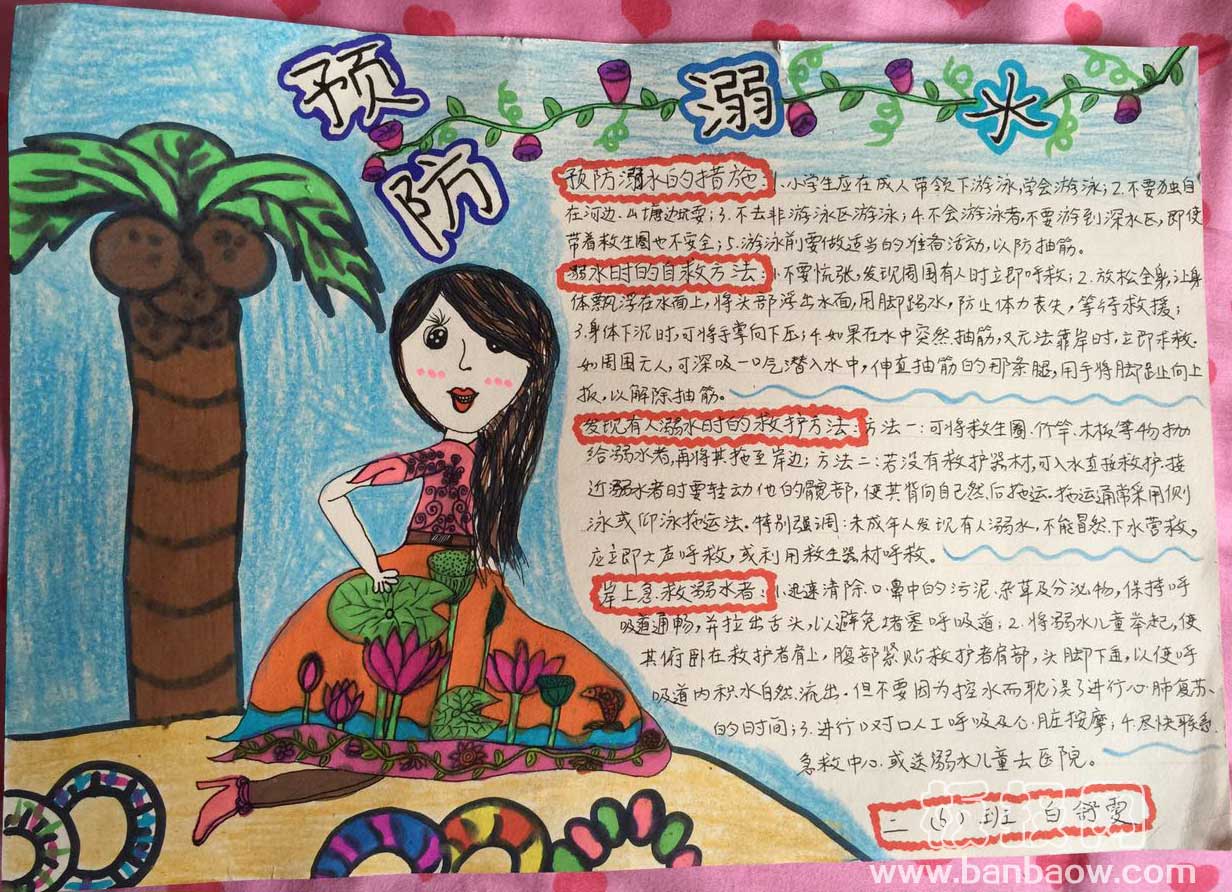 预防溺水
预防溺水的措施:1.小学生应在成人带领下游泳,学会游泳;2.不要独自
在河边、山塘边玩耍;3.不去非游泳区游泳;4.不会游泳者,不要游到深水区,即使
带着救生圈也不安全;5.游泳前要做适当的准备活动,以防抽筋。
溺水时的自救方法:1.不要慌张,发现周围有人时立即呼救;2.放松全身,让身
体飘浮在水面上,将头部浮出水面,用脚踢水,防止体力丧失,等待救援;
3.身体下沉时,可将手掌向下压;4.如果在水中突然抽筋,又无法靠岸时,立即求救.
如周围无人,可深吸一口气潜入水中,伸直抽筋的那条腿,用手将脚趾向上
扳,以解除抽筋。
发现有人溺水时的救护方法:方法一:可将救生圈.竹竿.木板等物抛
给溺水者,再将其拖至岸边;方法二:若没有救护器材,可入水直接救护.接
近溺水者时要转动他的髋部,使其背向自己然后拖运.拖运通常采用侧
泳或仰泳拖运法.特别强调:未成年人发现有人溺水,不能冒然下水营救,
应立即大声呼救,或利用救生器材呼救。
岸上急救溺水者:1.迅速清除口.鼻中的污泥.杂草及分泌物,保持呼
吸道通畅,并拉出舌头,以避免堵塞呼吸道;2.将溺水儿童举起,使
其俯卧在救护者肩上,腹部紧贴救护者肩部,头脚下垂,以使呼
吸道内积水自然流出.但不要因为控水而耽误了进行心肺复苏
的时间;3.进行口对口人工呼吸及心脏按摩;4.尽快联系
急救中心或送溺水儿童去医院。
二(6)班 白舒雯
www.banbaow.com